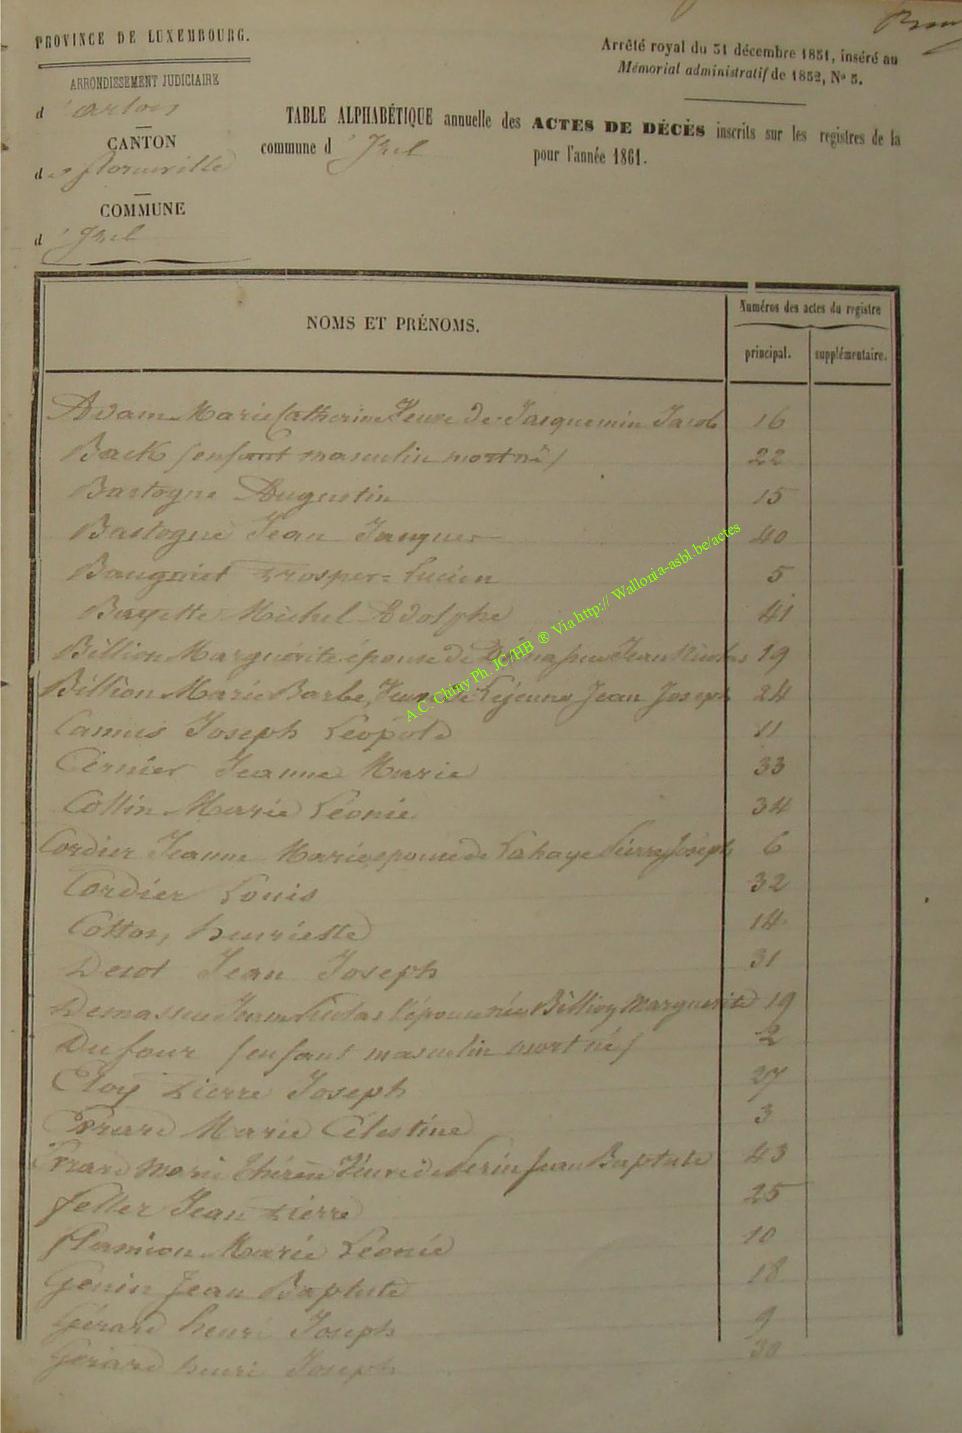 PROVINCE DE LUXEMBOURG.
ARRONDISSEMENT JUDICIAIRE
d'Arlon
CANTON
de Florenville
COMMUNE
d'Izel
Arrêté royal du 31 décembre 1851, inséré au
Mémorial administratif de 1852, No 5.
TABLE ALPHABÉTIQUE annuelle des ACTES DE DÉCÈS inscrits sur les registres de la
commune d'Izel pour l'année 1861.
NOMS ET PRÉNOMS.
Numéros des actes du registre
principal.
supplémentaire.
Adam Marie Catherine Veuve de Jacquemin Jacob 16
Back (enfant masculin mort né) 22
Bastogne Augustin 15
Bastogne Jean Jacques 40
Baugniet Prosper Lucien 5
Bayette Michel Adolphe 41
Billion Marguerite épouse de Jean Nicolas 19
Billion Marie Barbe, Veuve de Lejeune Jean Joseph 24
Camus Joseph Léopold 11
Cernier Jeanne Marie 33
Collin Marie Léonie 34
Cordier Jeanne Marie, épouse de Lahaye Pierre Joseph 6
Cordier Louis 32
Cotton, henriette 14
Decot Jean Joseph 31
Demasseu Jean Nicolas l'épouse née Billion Marguerite 19
Dufour (enfant masculin mort né) 2
Eloy Pierre Joseph 27
Erard Marie Célestine 3
Erard Marie Thérèse Veuve de Perin Jean Baptiste 43
Feller Jean Pierre 25
Flamion Marie Léonie 10
Genin Jean Baptiste 18
Gérard henri Joseph 9
Gérard henri Joseph 30
A.C. Chiny Ph. JC/HB ® Via http:// Wallonia-asbl.be/actes